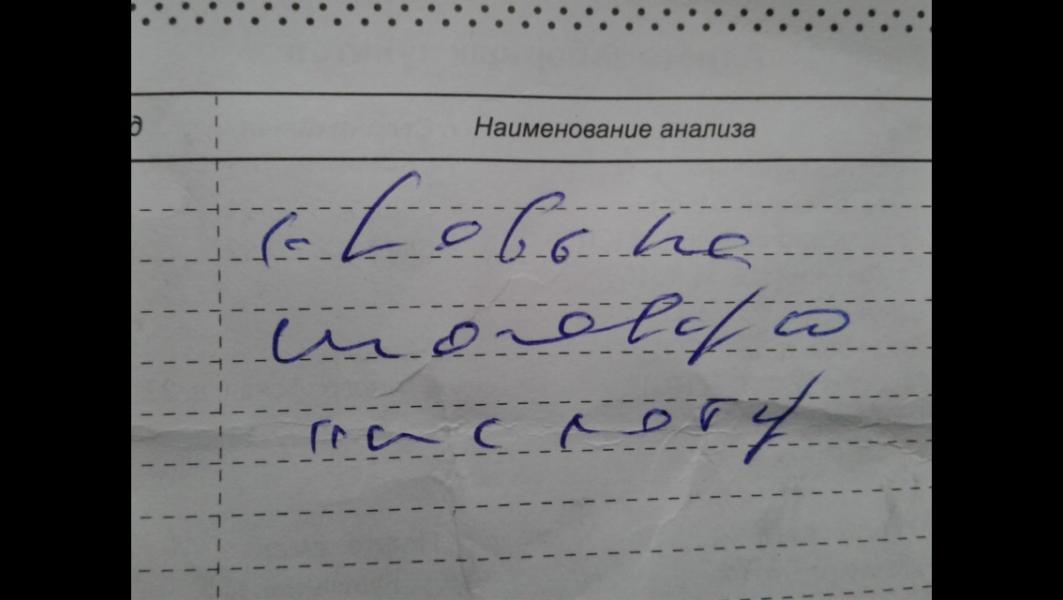 Наименование анализа
кровь на
мочевую
кислоту